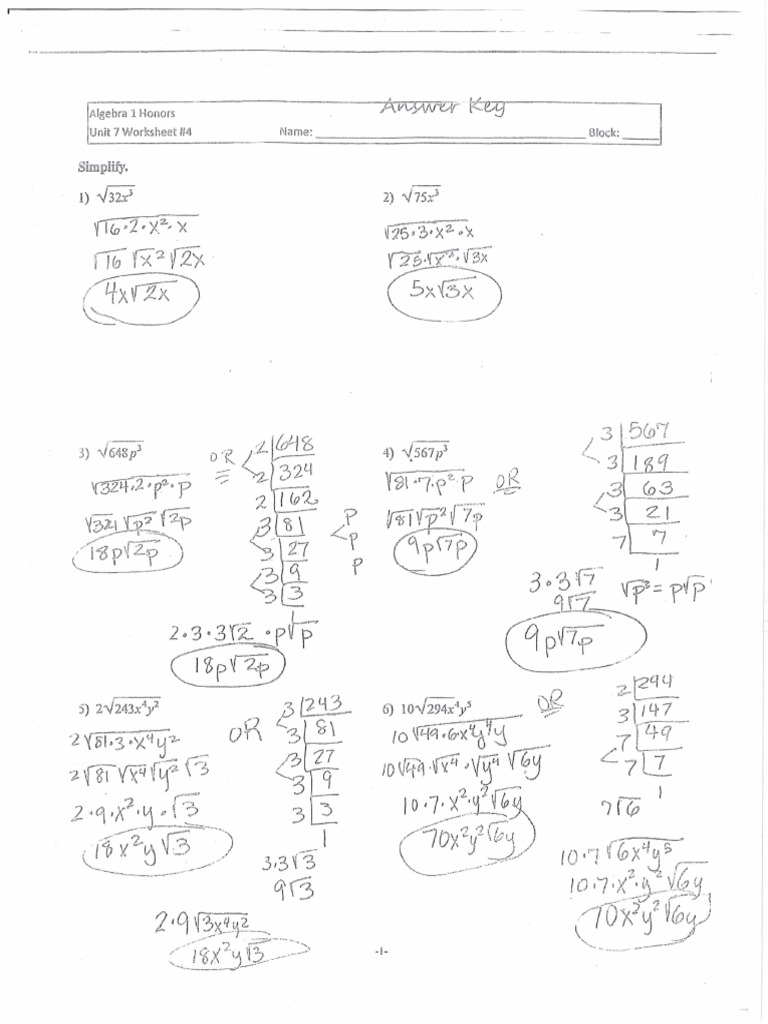 Answer Key
Algebra 1 Honors
Unit 7 Worksheet #4 Name: ______ Block: ______
Simplify.
1) √32x³
√16·2·x²·x
√16 √x² √2x
4x√2x
2) √75x³
√25·3·x²·x
√25·√x²·√3x
5x√3x
3) √648p³
√324·2·p²·p
√324 √p² √2p
18p√2p
OR
2 648
2 324
2 162
3 81
3 27
3 9
3 3
1
p
p
p
2·3·3√2 ·p√p
18p√2p
4) √567p³
√81·7·p²·p
√81 √p² √7p
9p√7p
OR
3 567
3 189
3 63
3 21
7 7
1
3·3√7
9√7
√p³ = p√p
9p√7p
5) 2√243x⁴y²
2√81·3·x⁴y²
2√81 √x⁴ √y² √3
2·9·x²·y·√3
18x²y√3
OR
3 243
3 81
3 27
3 9
3 3
1
3·3√3
9√3
2·9√3x⁴y²
18x²y√3
6) 10√294x⁴y⁵
10√49·6x⁴y⁴y
10√49·√x⁴·√y⁴ √6y
10·7·x²·y²√6y
70x²y²√6y
OR
2 294
3 147
7 49
7 7
1
7√6
10·7√6x⁴y⁵
10·7·x²·y²√6y
70x²y²√6y
-1-